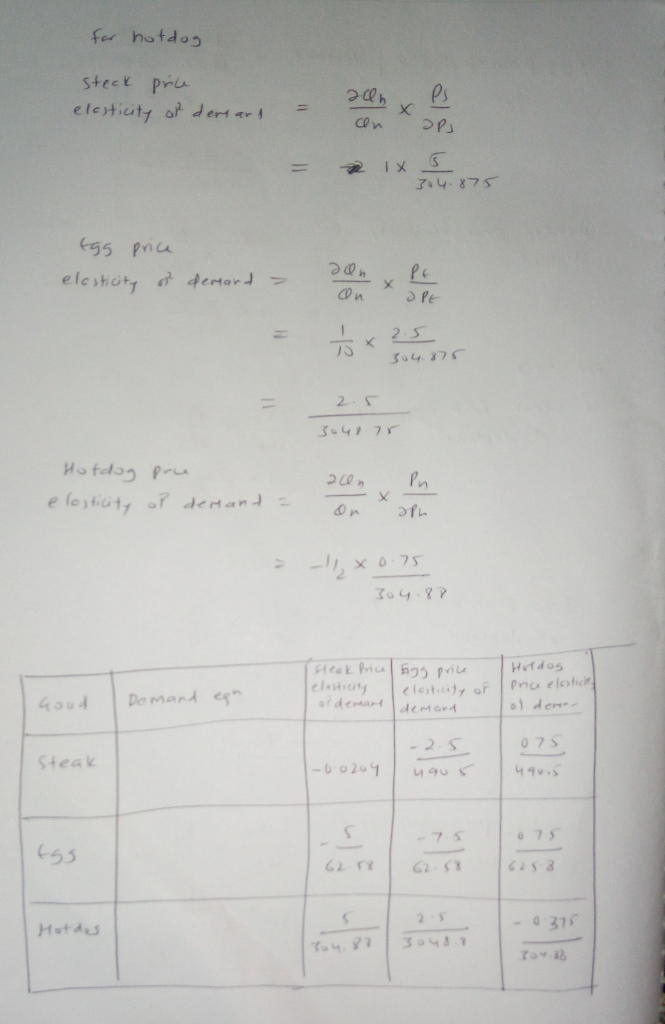 for hotdog
Steak price
elasticity of demand = ∂Qh/Qh × Ps/∂Ps
= 1 × 5/304.875
Egg price
elasticity of demand = ∂Qh/Qh × PE/∂PE
= 1/10 × 2.5/304.875
= 2.5/3048.75
Hotdog price
elasticity of demand = ∂Qh/Qh × Ph/∂Ph
= -1/2 × 0.75/304.88
Good | Demand eqn | Steak Price elasticity of demand | Egg price elasticity of demand | Hotdog Price elasticity of deman
Steak | | -0.0204 | -2.5/490.5 | 0.75/490.5
Egg | | -5/62.58 | -7.5/62.58 | 0.75/625.8
Hotdog | | 5/304.88 | 2.5/3048.8 | -0.375/304.88